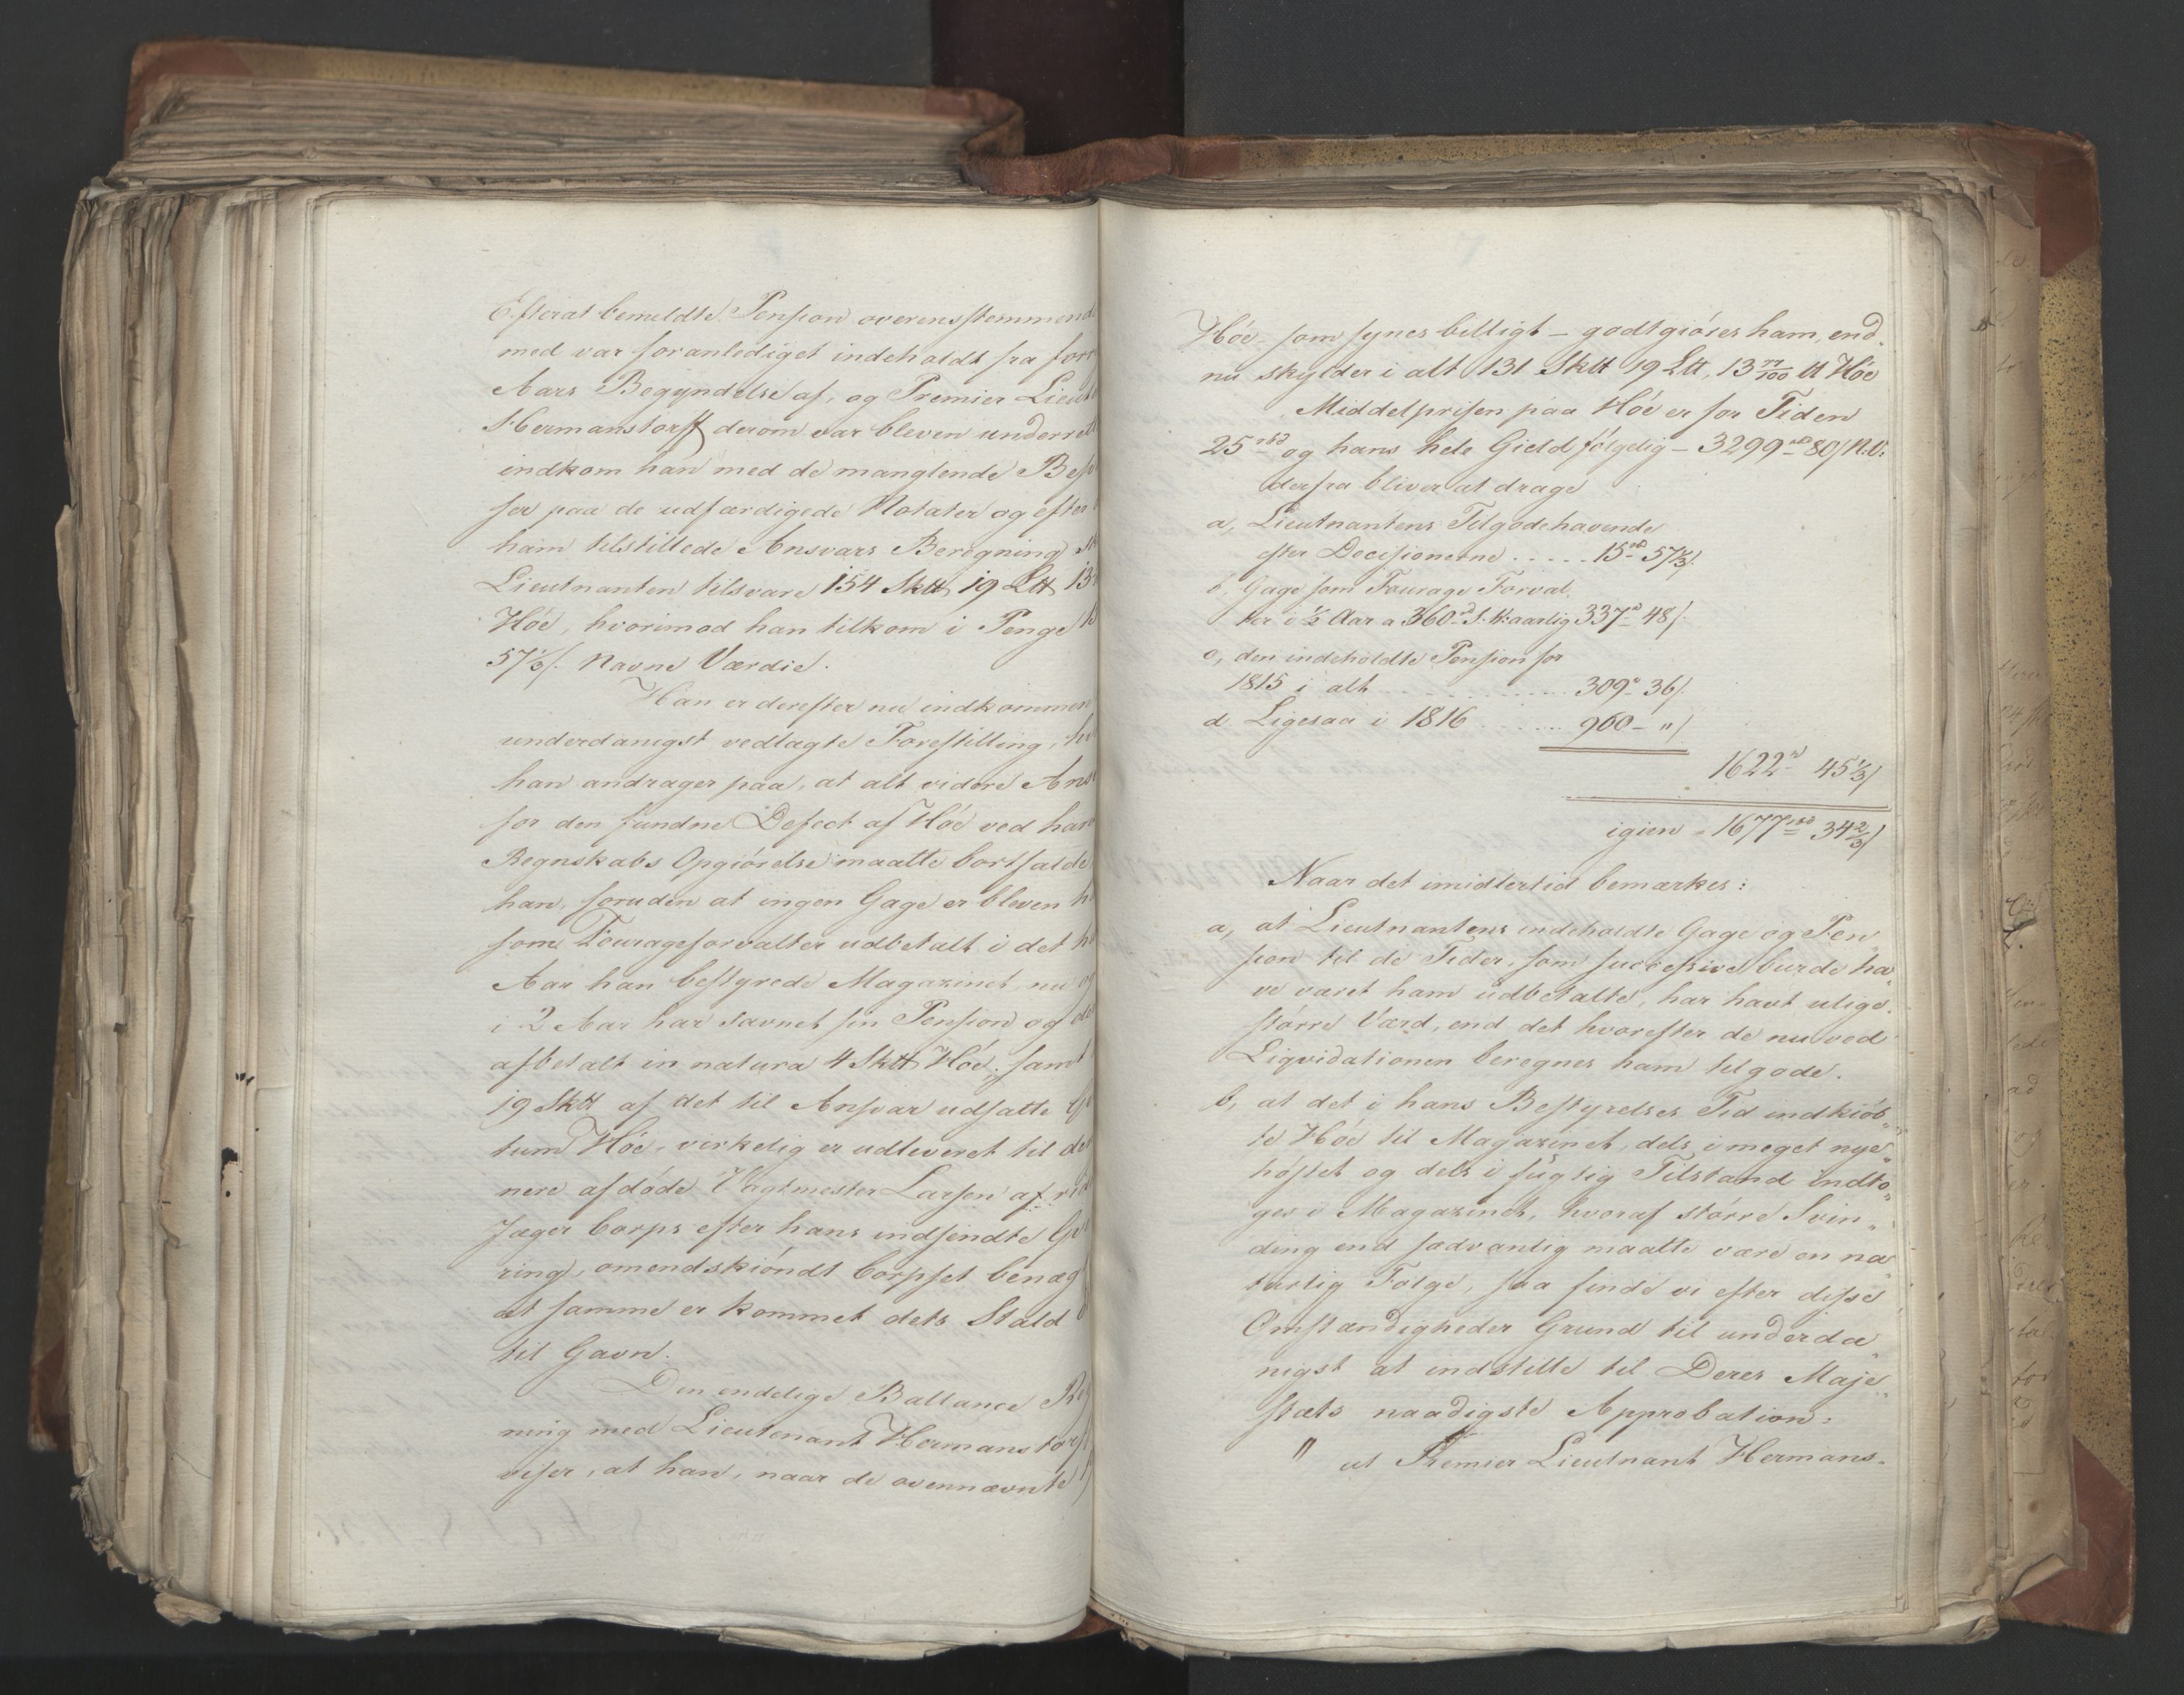 Efterat bemeldte Pension overensstemmende
med var foranlediget indeholdt fra forr
Aars Begyndelse af, og Premier Lieut
Hermanstorff derom var bleven underret
indkom han med de manglende Besv
ser paa de udfærdigede Notater og efter
ham tilstillede Ansvars Beregning
Lieutnanten tilsvare 154 Sktt 19 Ltt 13
Høe, hvorimod han tilkom i Penge 15
57⅓ s. Navne Værdie.
Han er derefter nu indkommen
underdanigst vedlagte Forestilling, hv
han andrager paa, at alt videre Ans
for den fundne Defect af Høe ved hans
Regnskabs Opgiørelse maatte bortfalde
han, foruden at ingen Gage er bleven h
som Fourageforvalter udbetalt i det h
Aar han bestyrede Magazinet nu og
i 2 Aar har savnet sin Pension og de
afbetalt in natura 4 Sktt Høe, samt
19 Sktt af det til Ansvar udsatte Qv
tum Høe, virkelig er udleveret til den
nere afdøde Vagtmester Larsen af rid
Jæger Corps efter hans indsendte Qv
ring, omendskiøndt Corpset benæg
at samme er kommet dets Stald
til Gavn.
Den endelige Ballance Reg
ning med Lieutenant Hermanstorff
viser, at han, naar de ovennævnte
Høe som synes billigt - godtgiøres ham, end
nu skylder i alt 131 Sktt 19 Ltt, 13 77/100 tt Høe
Middelprisen paa Høe er for Tiden
25 rbd og hans hele Gield følgelig - 3299 rbd 80 s N.V.
derfra bliver at drage
a, Lieutnantens Tilgodehavende
efter Decisionerne ..... 15 rbd 57⅓ s.
b, Gage som Fourage Forval,
ter i ½ Aar a 360 rd S.V. aarlig 337 rd 48 s.
c, den indeholdte Pension for
1815 i alt ........... 309 " 36 s.
d Ligesaa i 1816 ..... 960 - " s
1622 rd 45⅓ s
igien - 1677 rbd 34⅔ s
Naar det imidlertid bemærkes:
a, at Lieutnantens indeholdte Gage og Pen„
sion til de Tider, som successive burde ha„
ve været ham udbetalte, har havt ulige
større Værd, end det hvorefter de nu ved
Liqvidationen beregnes ham tilgode.
b, at det i hans Bestyrelses Tid indkiøb„
te Høe til Magazinet, dels i meget nye„
høstet og dels i fugtig Tilstand indto„
ges i Magazinet, hvoraf større Svin„
ding end sædvanlig maatte være en na„
turlig Følge, saa finde vi efter disse
Omstændigheder Grund til underda„
nigst at indstille til Deres Maje„
stæts naadigste Approbation:
" at Premier Lieutnant Hermans„